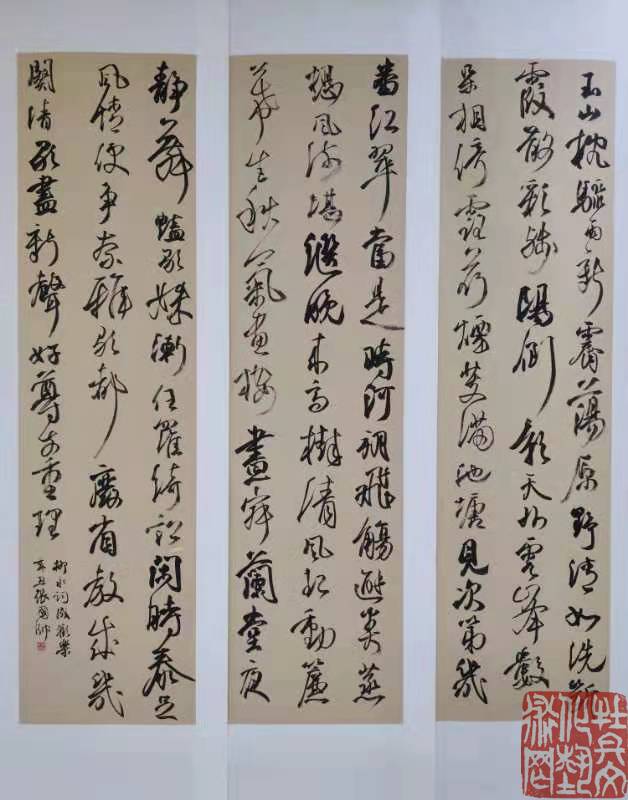 玉山枕驟雨新霽蕩原野清如洗斷
霞散彩殘陽倒影天外雲峯數
朵相倚露荷煙芰滿池塘見次第幾
番紅翠當是時河朔飛觴避炎蒸
想風流堪繼晚來高樹清風起動簾
幕生秋氣畫樓晝寂蘭堂夜
靜舞豔歌姝漸任羅綺訟閑時泰足
風情便爭奈雅歌都廢省教成幾
闋清歌盡新聲好尊前重理
柳永詞
辛丑張